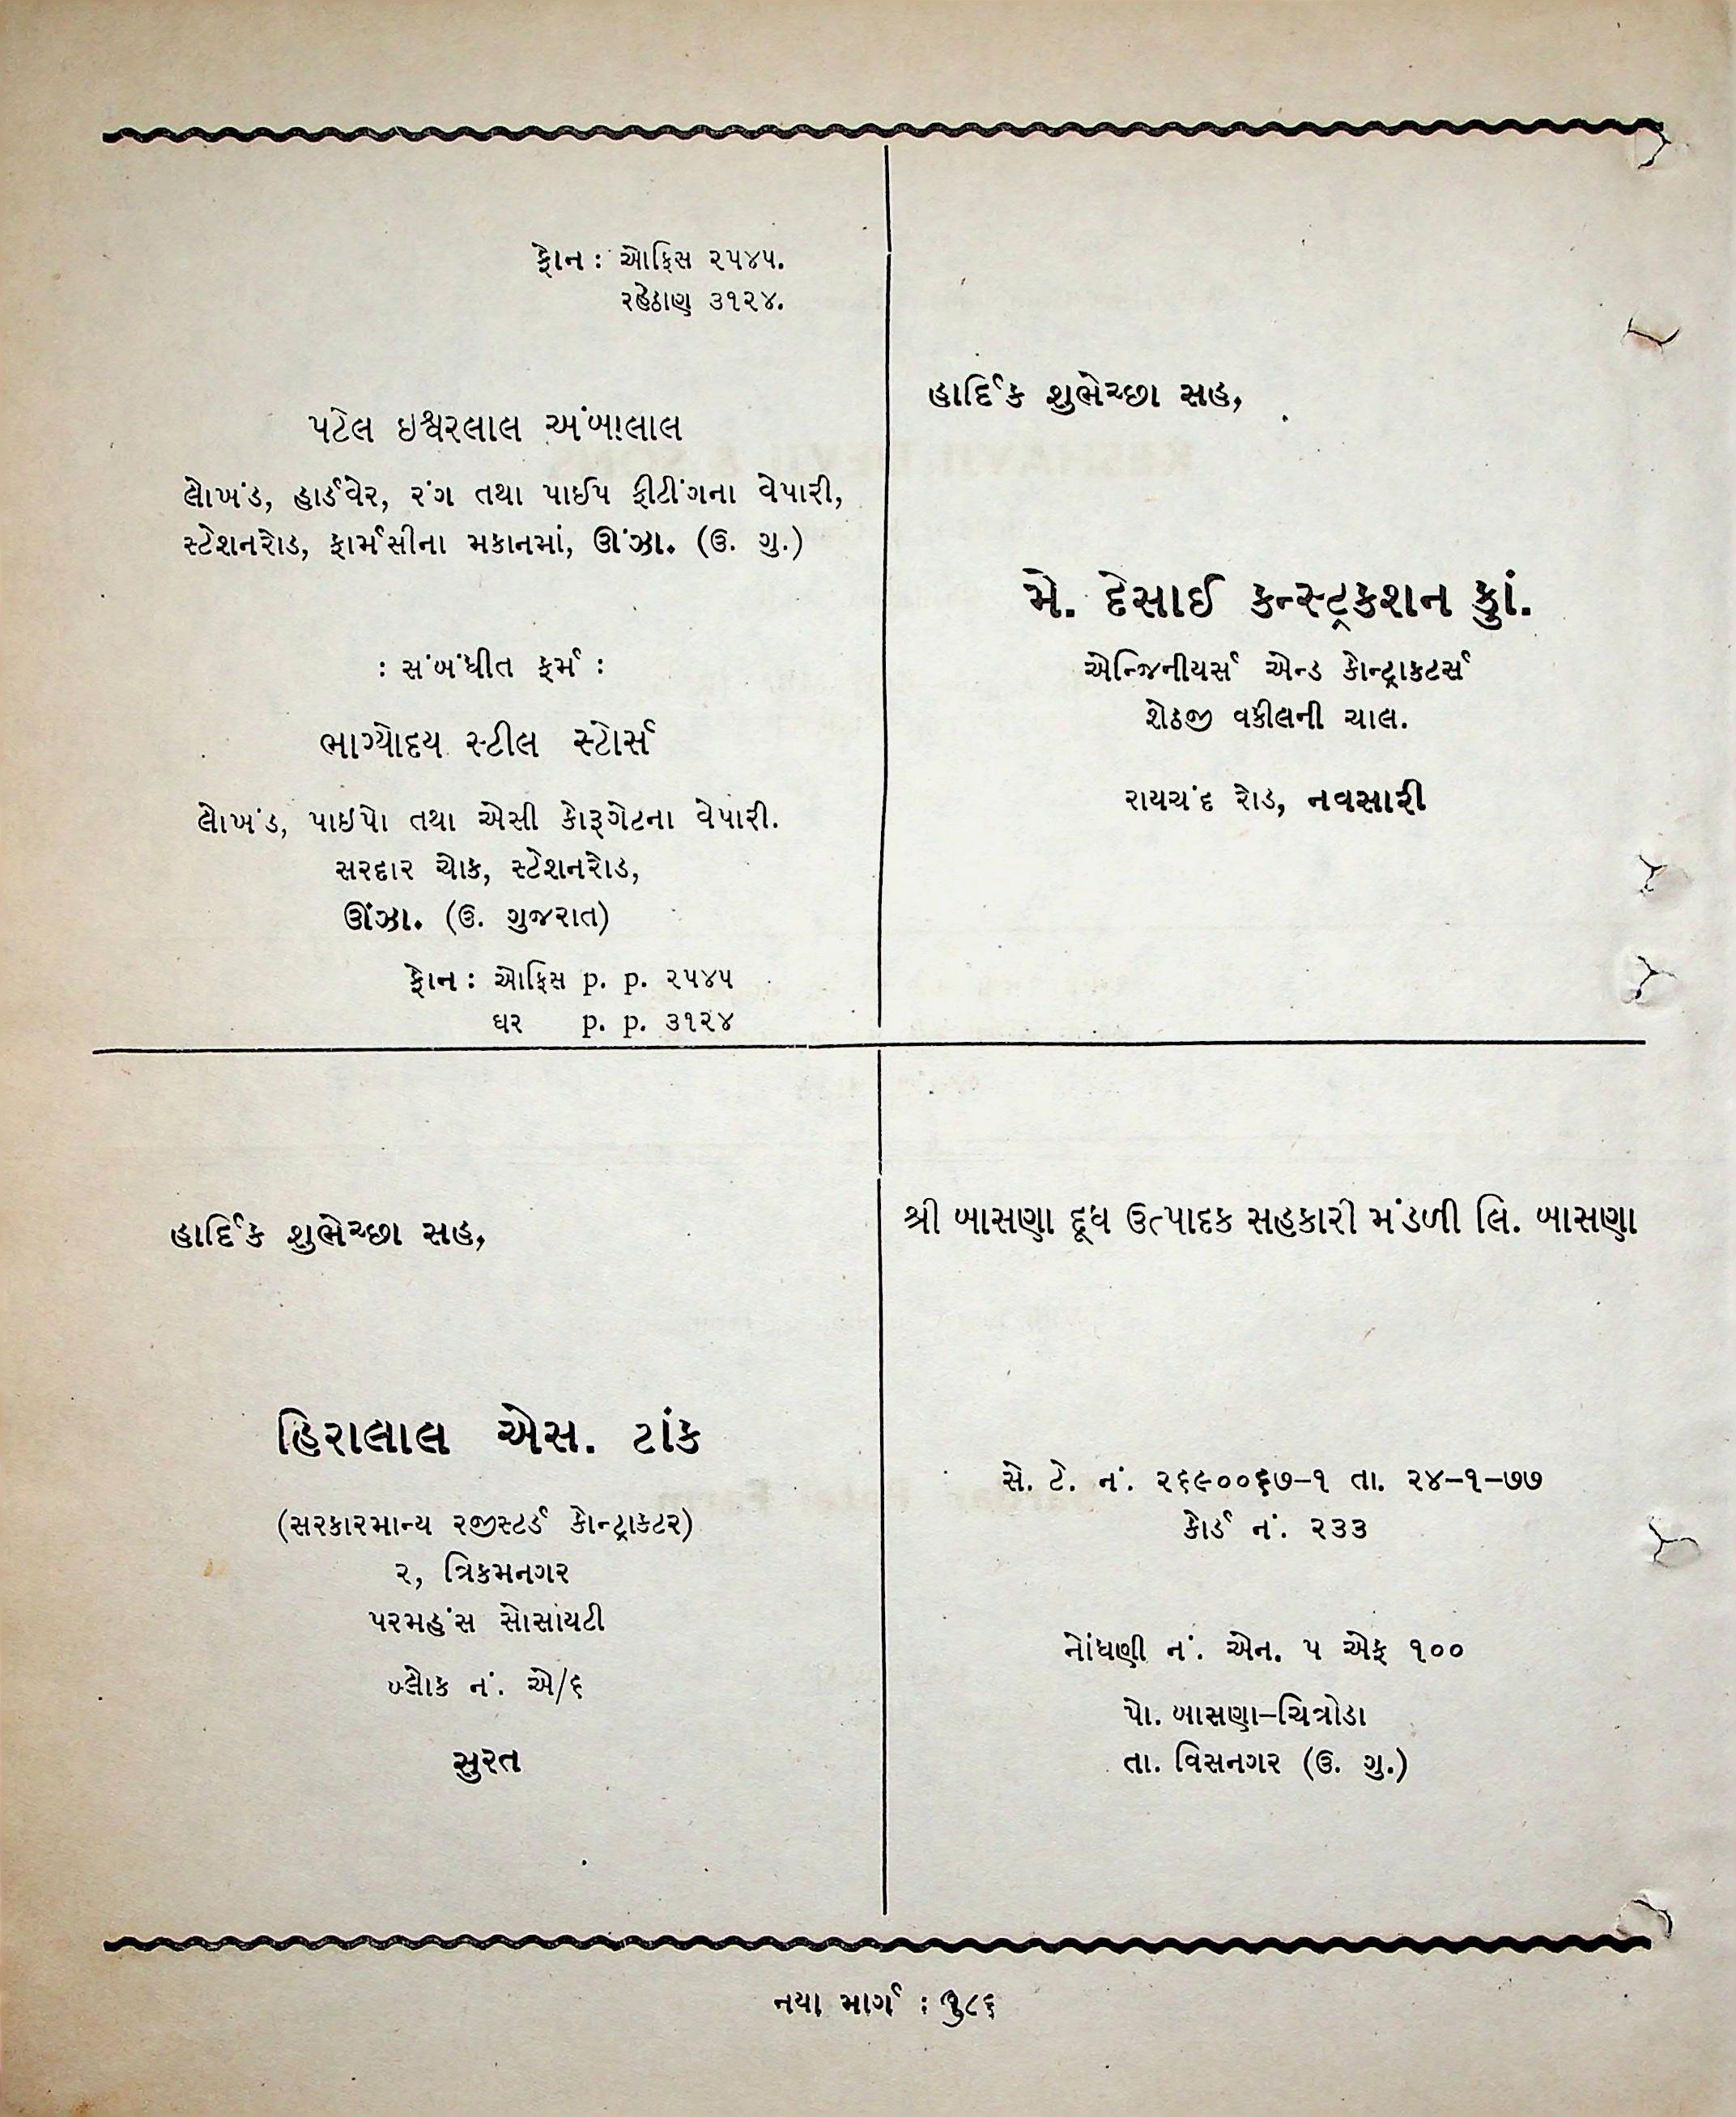 ફોન : ઓફિસ ૨૫૪૫.
રહેઠાણ ૩૧૨૪.
પટેલ ઇશ્વરલાલ અંબાલાલ
લોખંડ, હાર્ડવેર, રંગ તથા પાઈપ ફીટીંગના વેપારી,
સ્ટેશનરોડ, ફાર્મસીના મકાનમાં, ઊંઝા. (ઉ. ગુ.)
: સંબંધીત ફર્મ :
ભાગ્યોદય સ્ટીલ સ્ટોર્સ
લોખંડ, પાઇપો તથા એસી કોરૂગેટના વેપારી.
સરદાર ચોક, સ્ટેશનરોડ,
ઊંઝા. (ઉ. ગુજરાત)
ફોન : ઓફિસ p. p. ૨૫૪૫
ઘર p. p. ૩૧૨૪
હાર્દિક શુભેચ્છા સહ,
મે. દેસાઈ કન્સ્ટ્રકશન કું.
એન્જિનીયર્સ એન્ડ કોન્ટ્રાકટર્સ
શેઠજી વકીલની ચાલ.
રાયચંદ રોડ, નવસારી
હાર્દિક શુભેચ્છા સહ,
હિરાલાલ એસ. ટાંક
(સરકારમાન્ય રજીસ્ટર્ડ કોન્ટ્રાકટર)
૨, ત્રિકમનગર
પરમહંસ સોસાયટી
બ્લોક નં. એ/૬
સુરત
શ્રી બાસણા દૂધ ઉત્પાદક સહકારી મંડળી લિ. બાસણા
સે. ટે. નં. ૨૬૯૦૦૬૭–૧ તા. ૨૪–૧–૭૭
કોર્ડ નં. ૨૩૩
નોંધણી નં. એન. ૫ એફ ૧૦૦
પો. બાસણા–ચિત્રોડા
તા. વિસનગર (ઉ. ગુ.)
નયા માર્ગ : ૧૮૬